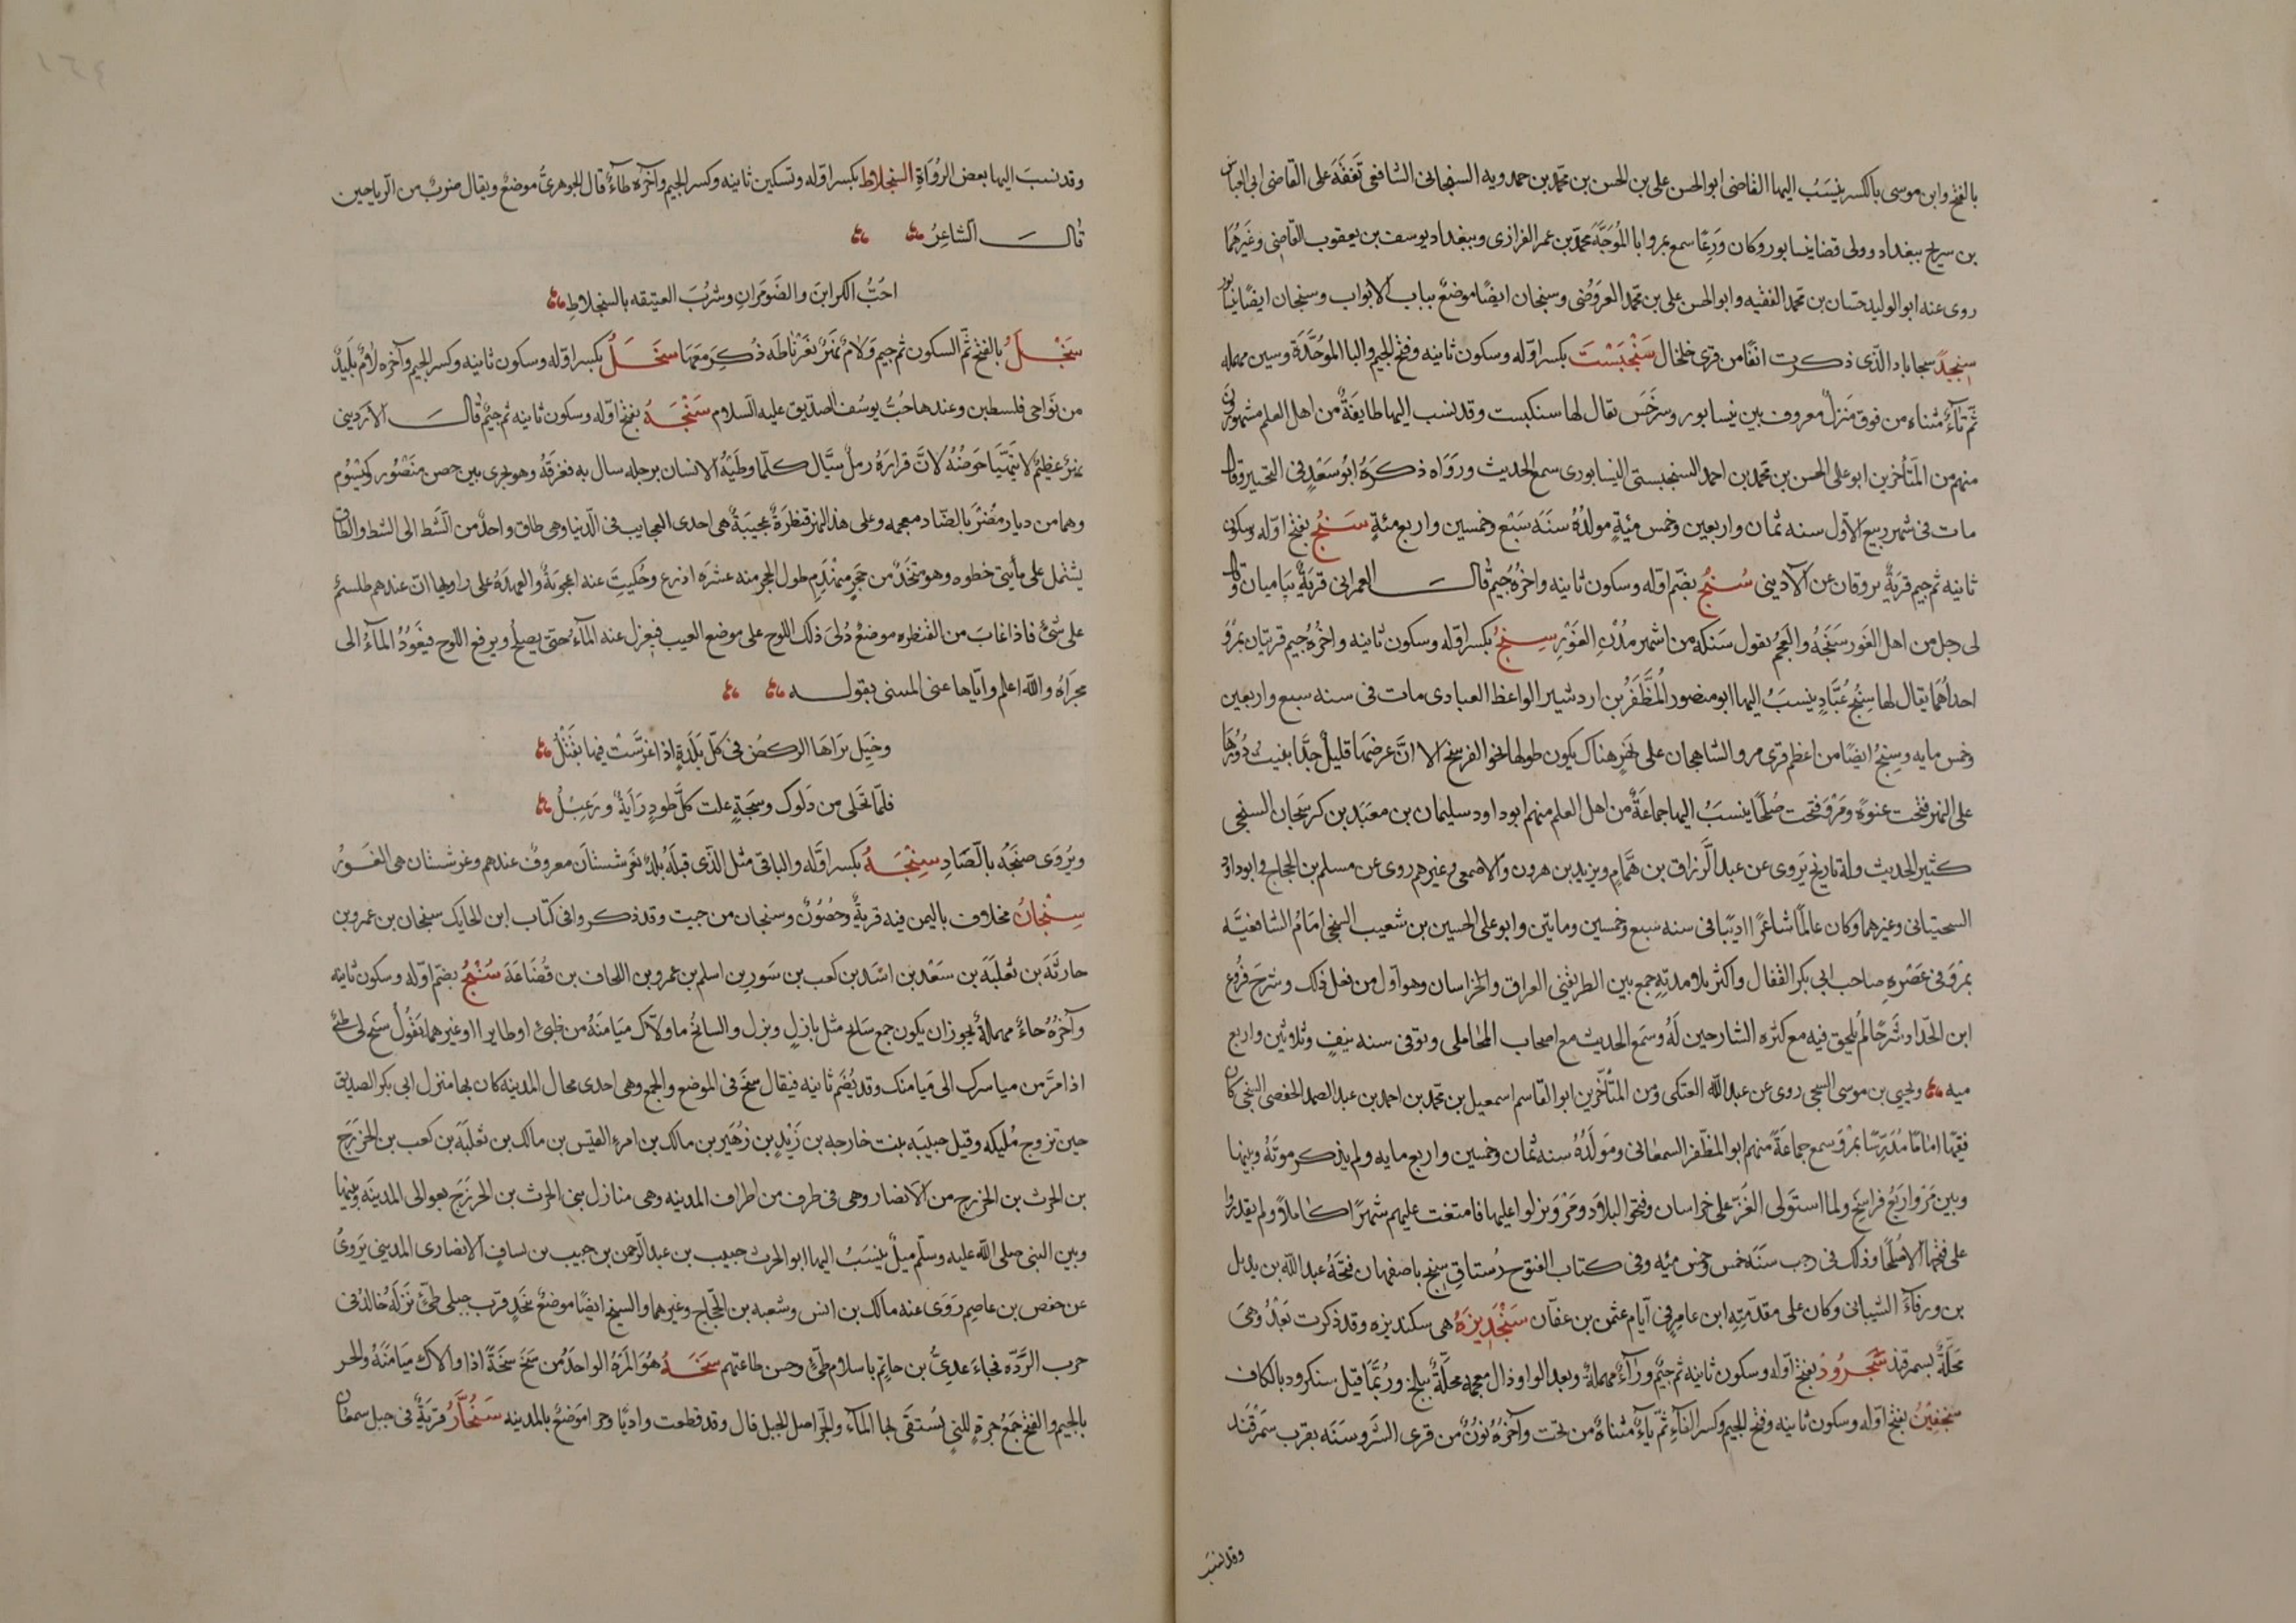 بالفتح وابن موسى بالكسر ينسَبُ اليها القاضى ابوالحسن على بن الحسن بن محمد بن حمدويه السنجانى الشافعى تَفَقَّهَ على القاضى ابى العباس
بن سريج ببغداد وولى قضا نيسابور وكان وَرِعًا سمع بمرو ابا المُوَجَّهَ محمّد بن عمر الفزازى وببغداد يوسف بن يعقوب القاضى وغيرهُمَا
روى عنه ابو الوليد حسّان بن محمد الفقيه وابو الحسن على بن محمّد العروضى وسنجان ايضًا موضعٌ بباب الابواب وسنجان ايضًا بنيسابور
سِنجِيدَ سجاباد الّذى ذكرت انفًا من قرى خلخال سَنْجَبَسْتَ بكسر اوّله وسكون ثانيه وفتح الجيم والبا الموُحَّدَة وسين مهمله
ثمّ تآءٌ مثناه من فوق مَنزلٌ معروف بين نيسابور وسرخَس يقال لها سنكبست وقد نسب اليها طايفَةٌ من اهل العلم مشهورُون
منهم من المتأخرين ابو على الحسن بن محمّد بن احمد السنجبستى النيسابورى سمع الحديث ورَوَاه ذكرَهُ ابُو سَعْدٍ فى التحبير وقال
مات فى شهر ربيع الاوّل سنه ثمان واربعين وخمس مئةٍ مولدُهُ سنَهَ سَبْع وخمسين واربع مئةٍ سَنجُ بفتح اوّله وسكون
ثانيه ثم جيم قريَةٌ بروقان عن الآدينى سُنجُ بضم اوّله وسكون ثانيه واخرُهُ جيمٌ قال العمرانى قريَةٌ بباميان وقال
لى رجل من اهل الغَور سَنجَهُ والعَجُم يقول سَنكه من اشهر مُدُنِ الغَوْرِ سِنجُ بكسر اوّله وسكون ثانيه واخرُهُ جيم قريتان بمَرْوَ
احداُهُمَا يقال لها سِنْجُ عُبَّادٍ ينسَبُ اليها ابو منصور المُظَّفَرُ بن اردشير الواعظ العبادى مات فى سنه سبع واربعين
وخمس مايه وسِنجُ ايضًا من اعظم قرى مرو الشاهجان على نهَرٍ هناك يكون طولها نحوا لفرسخ الا انَّ عرضهَا قليلٌ جدًّا بنيت دُورُهَا
على النهر فتحت عنوَةً ومَرْوَ فتحت صُلحًا ينسَبُ اليها جماعَةٌ من اهل العلم منهم ابو داود سليمان بن معبَد بن كرسجان السنجى
كثير الحديث وله تاريخ يَروى عن عبد الرّزاق بن همَّامٍ ويزيد بن هرون والاصمعى وغيرهم روى عن مسلم بن الحجاج وابو داود
السجستانى وغيرهما وكان عالمًا شاعرًا اديبًا فى سنه سبع وخمسين ومايتن وابو على الحسين بن شعيب السنجى امَامُ الشافعيَّه
بمَرْوَ فى عَصْرِهِ صاحب ابى بكر القفال واكثر تلامدتِهِ جمع بين الطريقتى العراق والخراسان وهو اوّل من فعل ذلك وشرح فُرُوعَ
ابن الحّداد شرحًا لم يُلحَق فيه مع كثرَه الشارحين لَهُ وسَمَع الحديث مع اصحاب المُحاملى وتوفى سنه نيفٍ وثلاثين واربع
ميه ويحيى بن موسى السجى روى عن عبد اللّه العتكى ومن المتأخّرين ابو القاسم اسمعيل بن محمّد بن احمد بن عبد الصمد الحفصى السنجى كان
فقيهًا امامًا مُدَرِّسًا بمَرْوَ سمع جماعَةً منهم ابو المظفّر السمعانى ومَولدُهُ سنه ثمان وخمسين واربع مايه ولم يذكر موتهُ وبينها
وبين مَرْوَ اربَعُ فراسِخ ولما استَولى الغَزّ على خراسان وفتحوا البلاد ومَرْوَ نزلوا عليها فامتنعت عليهم شهرًا كاملاً ولم يقدروا
على فتحها الّا صُلحًا وذلك فى رجب سنَهَ خمس وخمس مئيه وفى كتاب الفتوح رُستاق سِنج باصفهان فتحَهُ عبد اللّه بن بديل
بن ورقآءَ الشيبانى وكان على مقدّمتِهِ ابن عامرٍ فى ايّام عثمن بن عفّان سَنْجَدِيزَهُ هى سكنديزه وقد ذكرت بَعْدُ وهى
محَلَّةٌ بسمرقند سَنْجَرُودُ بفتح اوّله وسكون ثانيه ثم جيمٌ ورآءٌ مهملةٌ وبعد الواو ذال معجمه محلَّةٌ ببلخ ورُبمَّا قيل سنكرود بالكاف
سَنجفينُ بفتح اوّله وسكون ثانيه وفتح الجيم وكسر الفآءِ ثمّ يآءٌ مثناةٌ من تحت وآخرُهُ نُونٌ من قرى اشروسنَه بقرب سمَرقَند
وقد نسَبَ
١٦٤
وقد نسبَ اليها بعض الرُوَاةِ السِّنجِلاط بكسر اوّله وتسكين ثانيه وكسر الجيم وآخرَه طآءٌ قال الجوهرىُّ موضعٌ ويقال ضربٌ من الرياحين
قال الشاعِرُ
احَبُّ الكراينَ والضَومَرانِ وشرُبَ العتيقه بالسنجلاطِ
سَنجْلَ بالفتح ثمّ السكون ثم جيم وَلامٌ نَهْرٌ بغَرناطَه ذُكِرَ معَهَا سِنجَلُ بكسر اوّله وسكون ثانيه وكسر الجيم وآخره لامٌ بلَيدٌ
من نَواحى فلسطين وعندها جُبُّ يوسُف الصدّيق عليه السلام سَنْجَهُ بفتح اوّله وسكون ثانيه ثم جيمٌ قال الآديبى
نهرٌ عظيمٌ لا يتهيّيا خوضُهُ لانَّ قرارَهُ رملٌ سيَّال كلّما وطئَهُ الانسان برجله سال به فغرقَهُ وهو يجرى بين حصن منصُور وكيسُوم
وهما من ديار مُضَرَ بالضّاد معجمه وعلى هذا النهر قنطرَةٌ عجيبَةٌ هى احدى العجايب فى الدّنيا وهى طاق واحدٌ من الشَط الى الشط والطاق
يشتمل على مأيتى خطوه وهو متخَذٌ من حَجَرٍ مهندَمِ طول الحجر منه عشرَه اذرع وحُكِيَتِ عنه اعجوبَةٌ والعهدَهُ على راويها انّ عندهم طلسمٌ
على شئٍ فاذا غابَ من القنطره موضعٌ دُلىَ ذلك اللوح على موضع العيب فيعزل عنه المآءُ حتى يصلح ويرفع اللوح فيعَودُ المآءُ الى
مجرَاهُ واللّه اعلم وايّاها عنى المتنبى بقوله
وخيلٍ برَاهَا الركض فى كلّ بَلدَةٍ اذا عرَّسَتْ فيها بقَتْلُ
فلمّا تجلى من دَلوك وسَنجَةٍ علت كلَّ طودٍ رَايَةٌ ورَعِيْلُ
ويُروَى صنجَهُ بالصّادِ سِنْجَهُ بكسر اوَّله والباقى مثل الّذى قبلَهُ بلدٌ بغَرشستانَ معروفٌ عندهم وغرشستان هى الغَورُ
سِنْحَانُ مخلاف باليمن فيه قريَةٌ وحُصُونٌ وسنجان من جيت وقد ذكر وافى كتاب ابن الحايك سنجان بن عمرو بن
حارثَهَ بن ثعلَبَهَ بن سَعْد بن اسَد بن كعب بن سَور بن اسلم بن عمرو بن اللحاف بن قُضَاعَهَ سُنْحُ بضم اوّله وسكون ثانيه
وآخرُهُ حاءٌ مهملةٌ يجوز ان يكون جمع سانح مثل بازلٍ وبزل والسانحُ ما ولّاك ميَامنَهُ من ظبىٍ او طايرٍ او غيرهما تقُولُ سنح لى ظبىٌ
اذا مرَّ من مياسرك الى مَيامنك وقد يُضَم ثانيه فيقال سنح فى الموضع والجمع وهى احدى محال المدينه كان بها منزل ابى بكر الصديق
حين تزوج مُليكه وقيل حبيبَه بنت خارجه بن زَيْدٍ بن زهَير بن مالك بن امرءِ القيس بن مالك بن ثعلَبَهَ بن كعب بن الخزرَج
بن الحرث بن الخزرج من الآنصار وهى فى طرف من اطراف المدينه وهى منازل بنى الحرث بن الخزرَج بعوالى المدينَه وبينها
وبين النبى صلى اللّه عليه وسلّم ميلٌ ينسَبُ اليها ابو الحرث حبيب بن عبد الرّحمن بن حبيب بن يسافٍ الآنصارى المدينى يَروِى
عن حفص بن عاصمٍ رَوَى عنه مالك بن انس وشعبه بن الحجّاج وغيرهما والسنح ايضًا موضعٌ بنجدٍ قرب جبلى طئٍّ نزلَهُ خالدٌ فى
حرب الرَّدَّه فجاءَ عدِىُّ بن حاتمٍ باسلام طئٍ وحسن طاعتهم سَنحَهُ هُوَ المَرَهُ الواحدَهُ من سَنحَ سنحَةً اذا ولاك ميَامنَهُ والجر
بالجيم والفتح جَمعُ جُرةٍ للتى يُستَقَى بها المآء والجَرّ اصل الجبل قال وقد قطعت واديًّا وجرا موَضعٌ بالمدينه سَنُحارُ قريَةٌ فى جبل سمعان